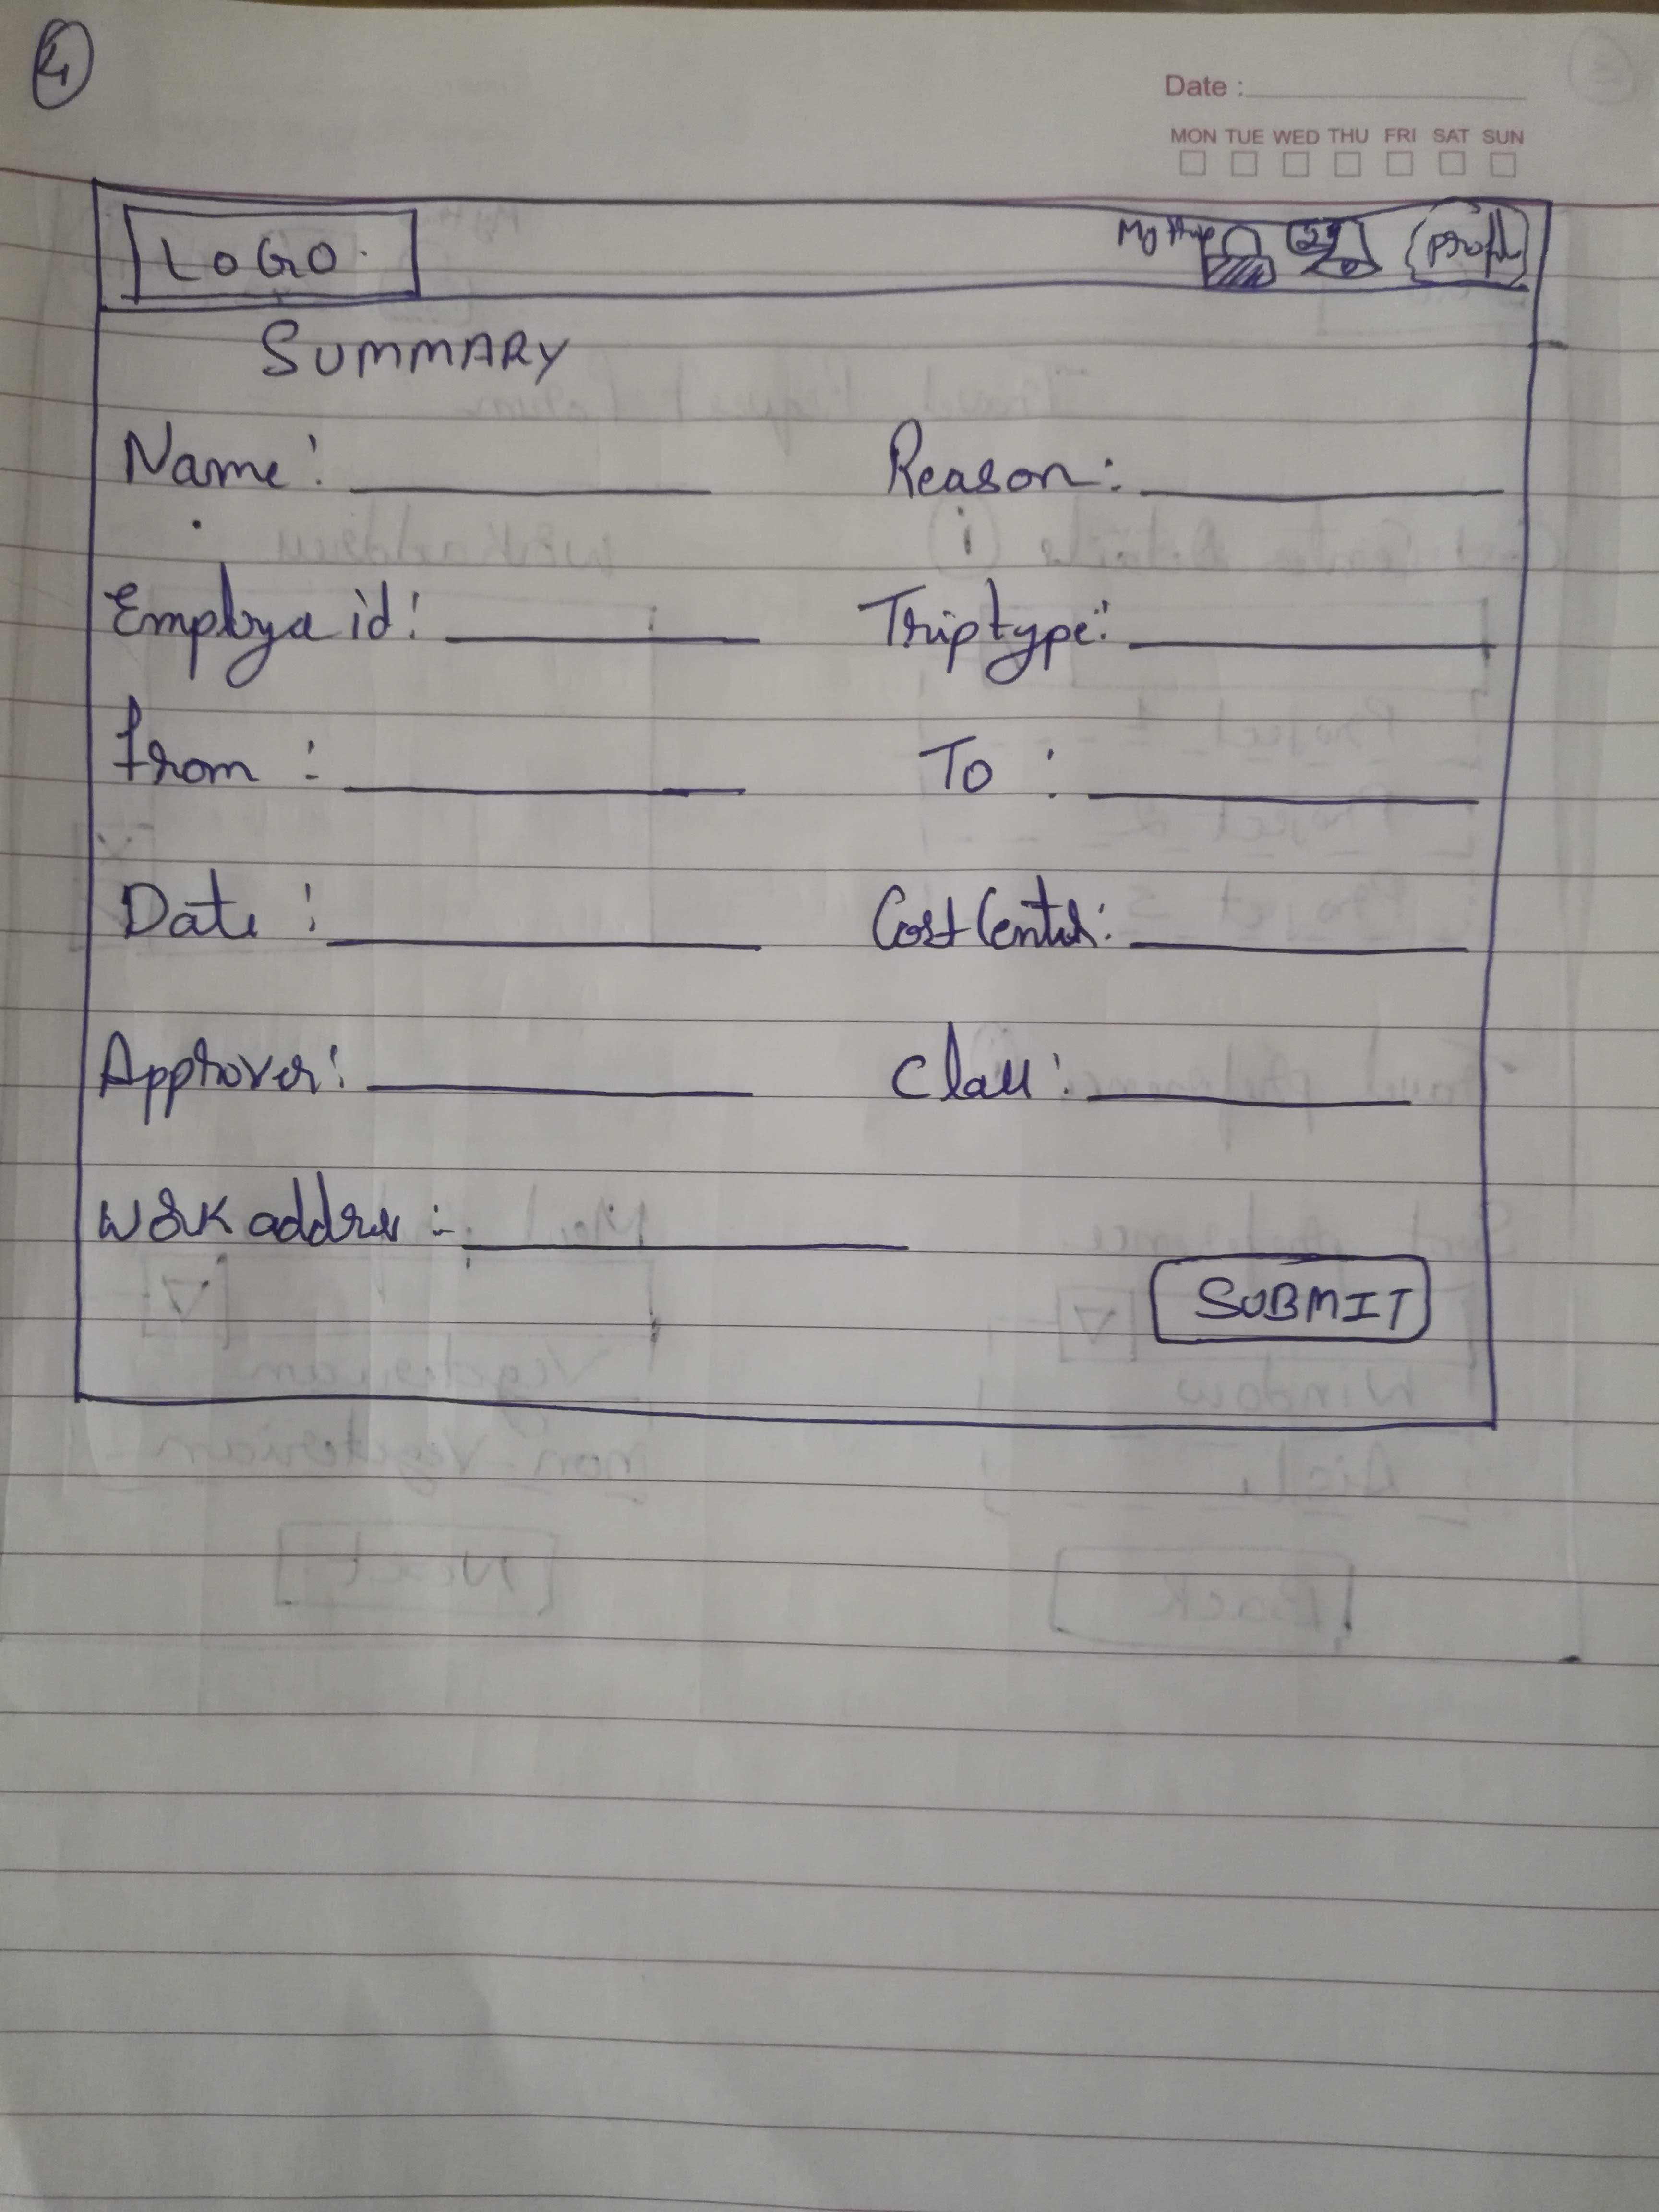 4
Date :
MON TUE WED THU FRI SAT SUN
LOGO
My trip
Profile
SUMMARY
Name :
Reason :
Employee id :
Trip type :
from :
To :
Date :
Cost Center :
Approver :
Class :
Work address :-
SUBMIT